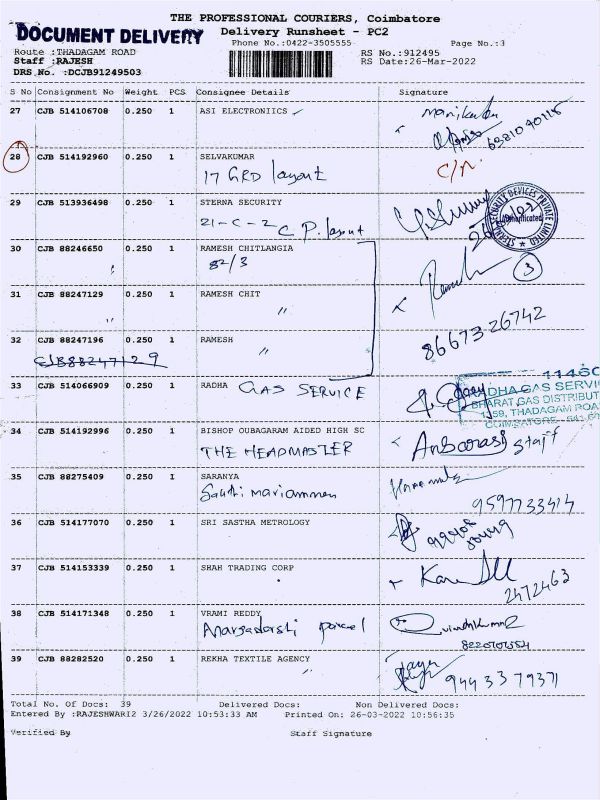 THE PROFESSIONAL COURIERS, Coimbatore
DOCUMENT DELIVERY
Delivery Runsheet - PC2
Phone No.:0422-3505555
Page No.:3
Route :THADAGAM ROAD
RS No.:912495
Staff :RAJESH
RS Date:26-Mar-2022
DRS No. :DCJB91249503
S No Consignment No Weight PCS Consignee Details Signature
27 CJB 514106708 0.250 1 ASI ELECTRONIICS
28 CJB 514192960 0.250 1 SELVAKUMAR
17 GRD layout
29 CJB 513936498 0.250 1 STERNA SECURITY
21-C-2 C.P. layout
30 CJB 88246650 0.250 1 RAMESH CHITLANGIA
82/3
3
31 CJB 88247129 0.250 1 RAMESH CHIT
"
32 CJB 88247196 0.250 1 RAMESH
"
86673 26742
33 CJB 514066909 0.250 1 RADHA GAS SERVICE
34 CJB 514192996 0.250 1 BISHOP OUBAGARAM AIDED HIGH SC
THE HEADMASTER
Anbarasi staff
35 CJB 88275409 0.250 1 SARANYA
36 CJB 514177070 0.250 1 SRI SASTHA METROLOGY
37 CJB 514153339 0.250 1 SHAH TRADING CORP
2472463
38 CJB 514171348 0.250 1 VRAMI REDDY
39 CJB 88282520 0.250 1 REKHA TEXTILE AGENCY
"
94433 79371
Total No. Of Docs: 39 Delivered Docs: Non Delivered Docs:
Entered By :RAJESHWARI2 3/26/2022 10:53:33 AM Printed On: 26-03-2022 10:56:35
Verified By Staff Signature